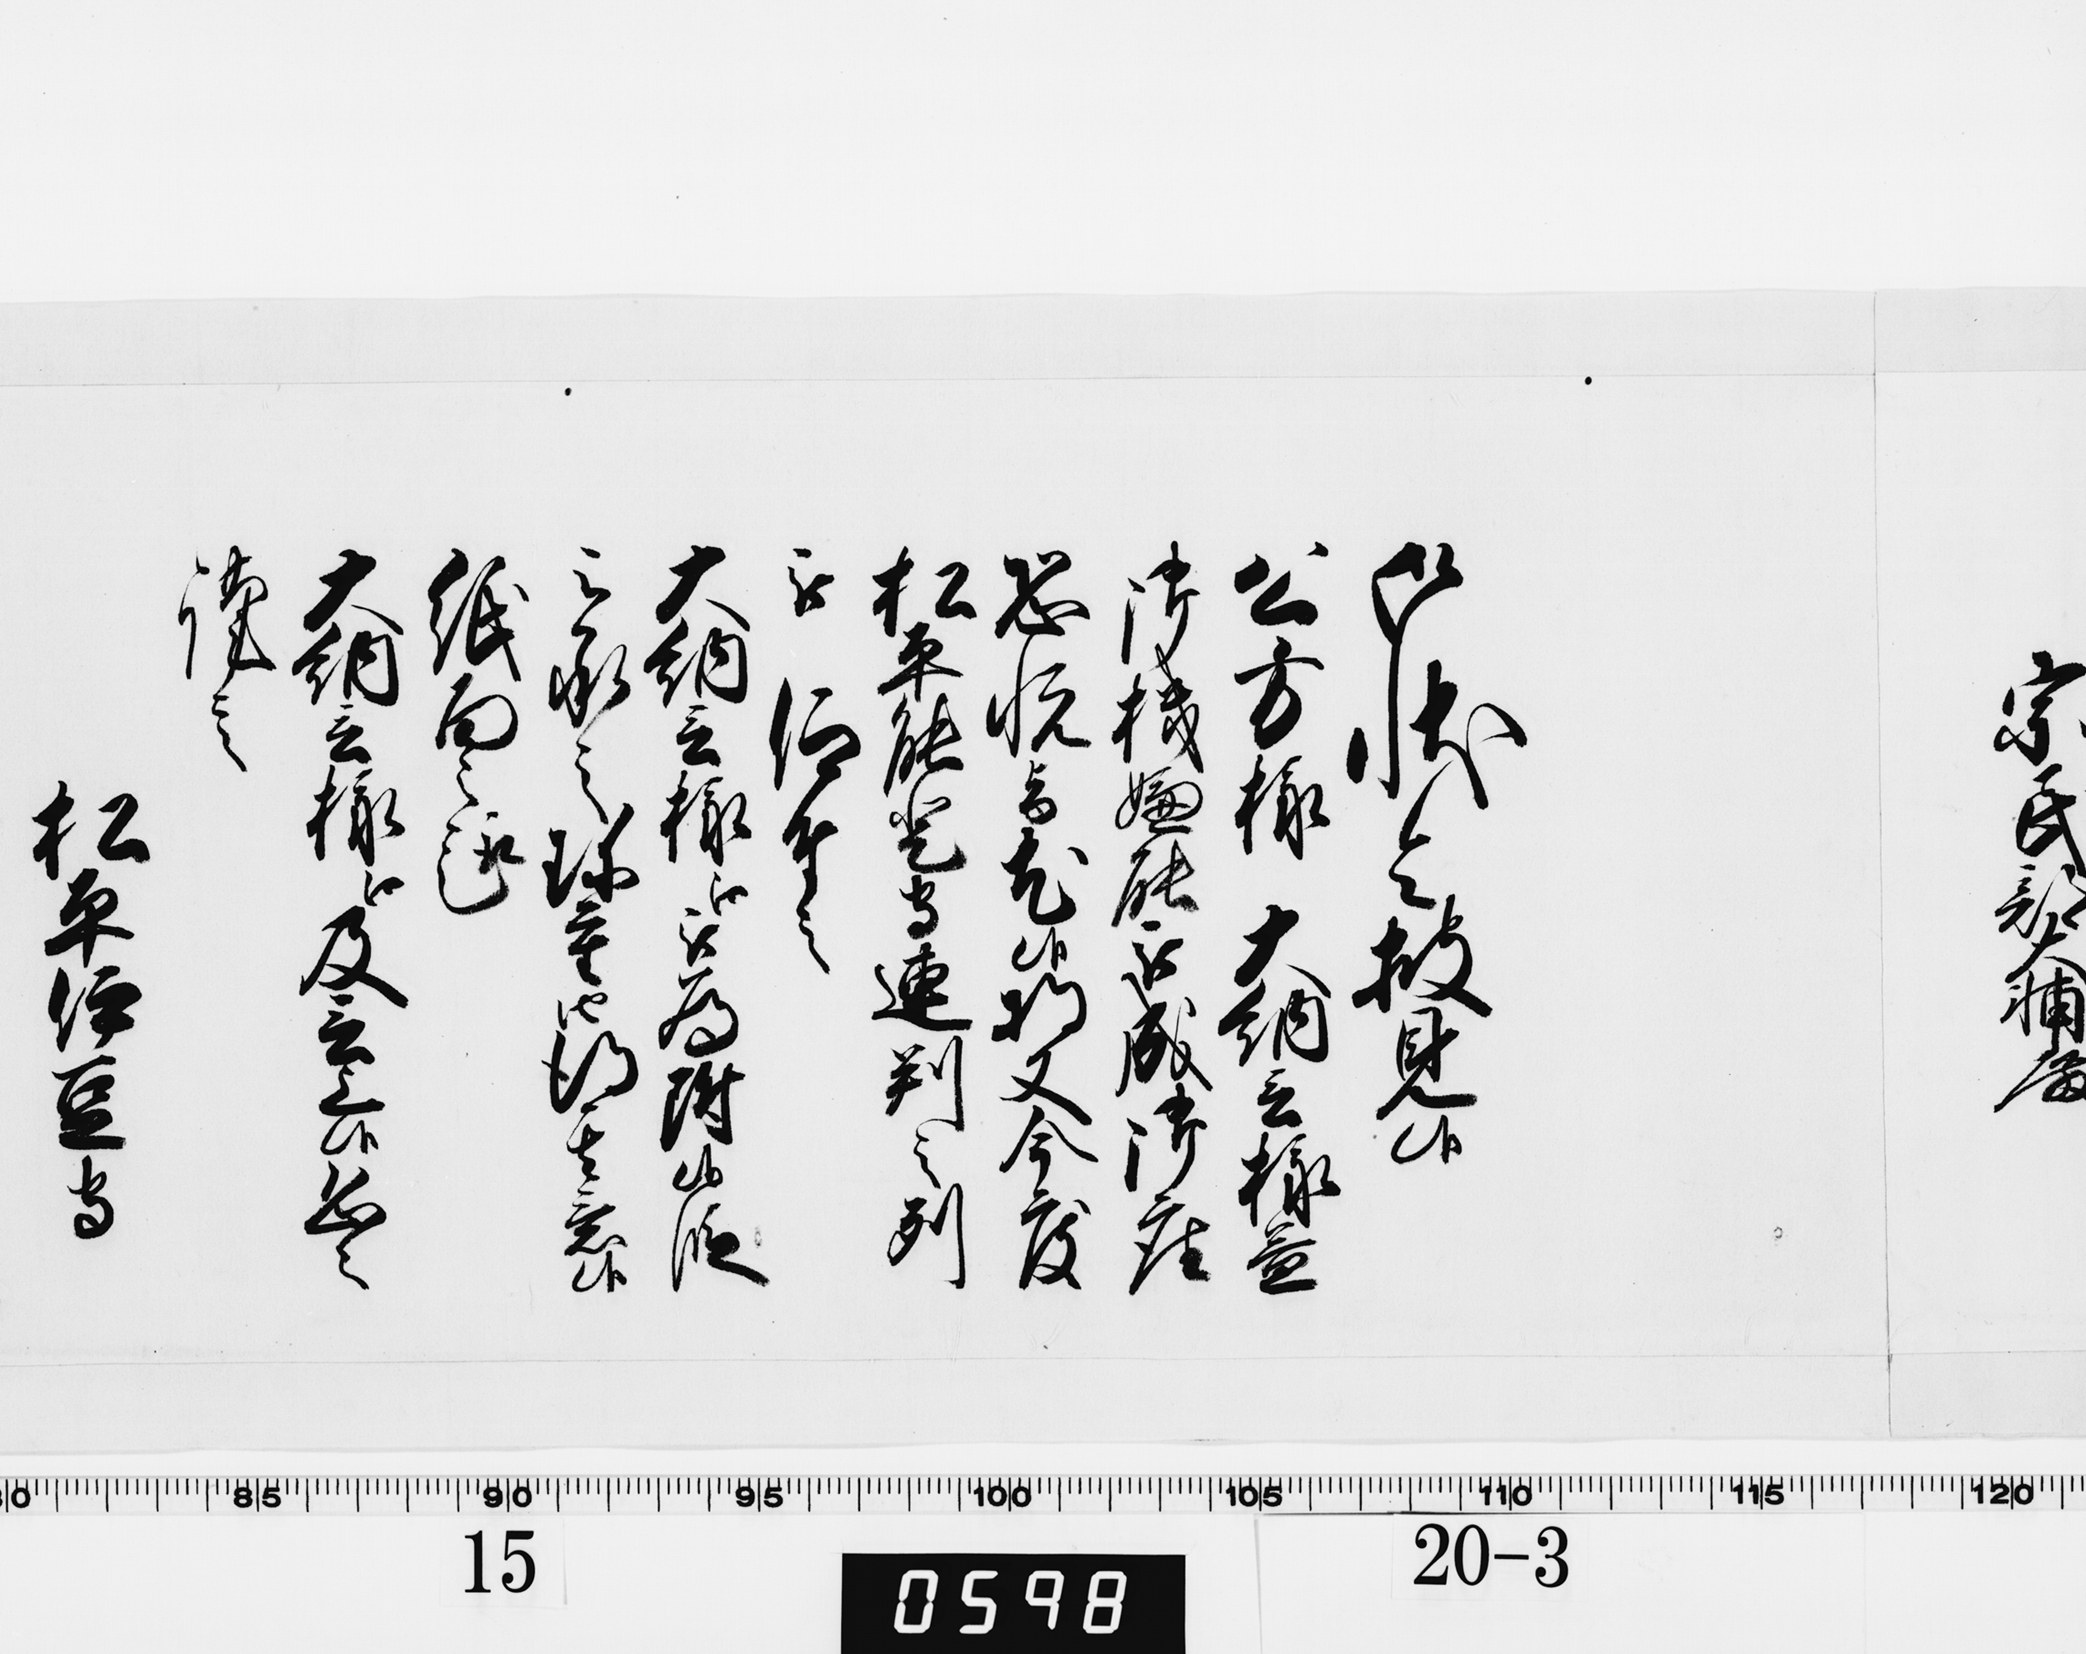 宗
民部大輔殿
御状令披見候
公方様　大納言様益
御機嫌能被成御座
恐悦旨尤候将又今度
松平能登守連判之列
被　仰付之
大納言様江被為附候段
被承之珍重之得其意候
紙面之趣
大納言様江及言上候恐々
謹言
松平伊豆守
80 85 90 95 100 105 110 115 120
15
0598
20-3